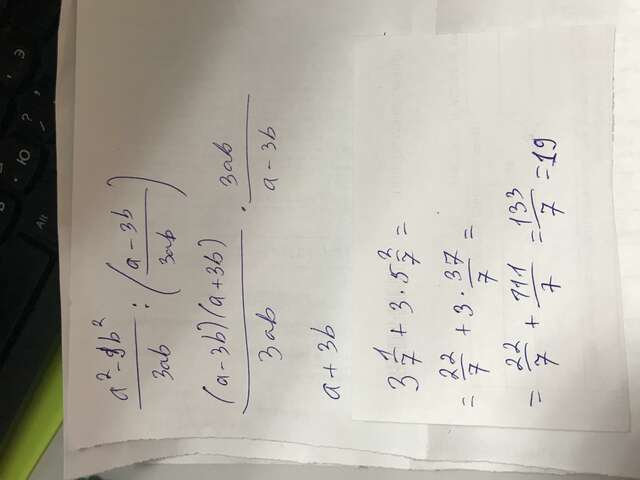 a² - 9b² / 3ab : (a - 3b / 3ab)
(a - 3b)(a + 3b) / 3ab · 3ab / a - 3b
a + 3b
3 1/7 + 3 · 5 2/7 =
= 22/7 + 3 · 37/7 =
= 22/7 + 111/7 = 133/7 = 19
Alt
Ю
?
Э